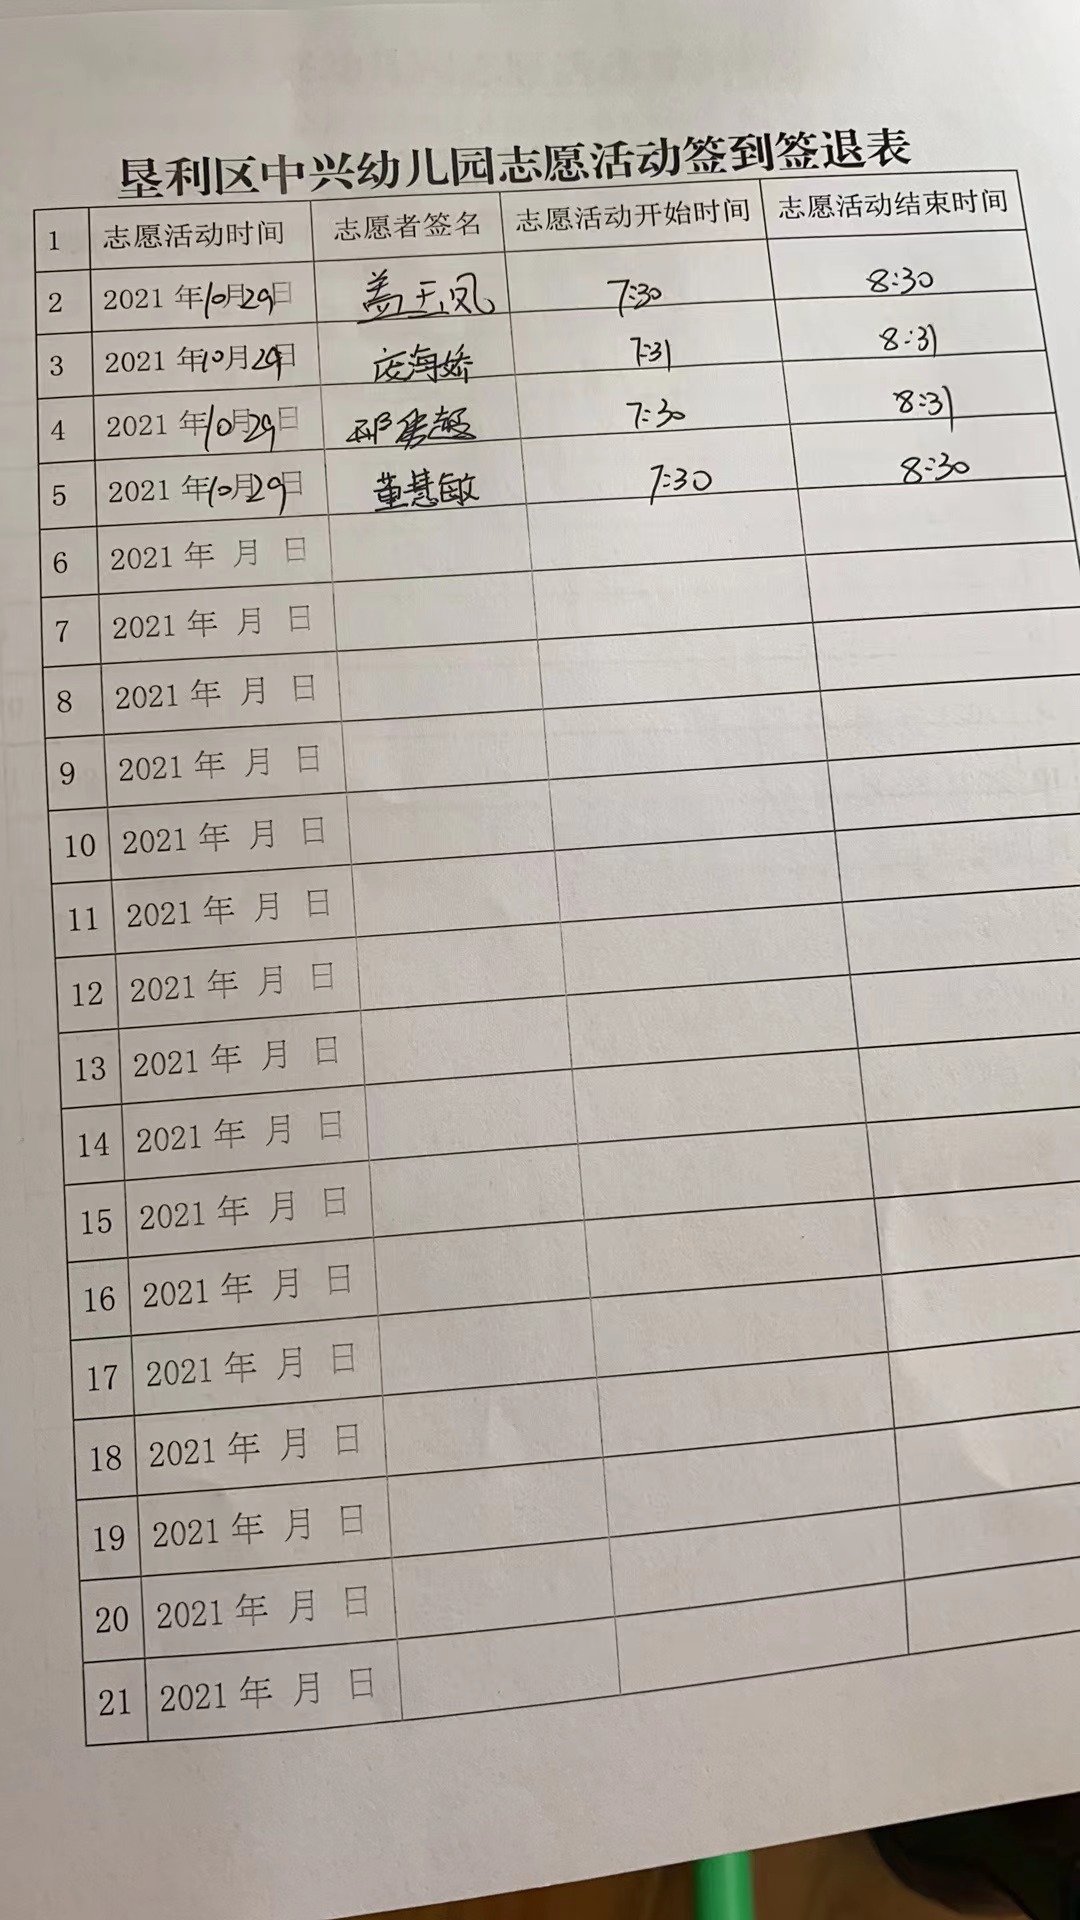 垦利区中兴幼儿园志愿活动签到签退表
1 志愿活动时间 志愿者签名 志愿活动开始时间 志愿活动结束时间
2 2021年10月29日 盖玉凤 7:30 8:30
3 2021年10月29日 海娇 7:31 8:31
4 2021年10月29日 7:30 8:31
5 2021年10月29日 董慧敏 7:30 8:30
6 2021年 月 日
7 2021年 月 日
8 2021年 月 日
9 2021年 月 日
10 2021年 月 日
11 2021年 月 日
12 2021年 月 日
13 2021年 月 日
14 2021年 月 日
15 2021年 月 日
16 2021年 月 日
17 2021年 月 日
18 2021年 月 日
19 2021年 月 日
20 2021年 月 日
21 2021年 月 日